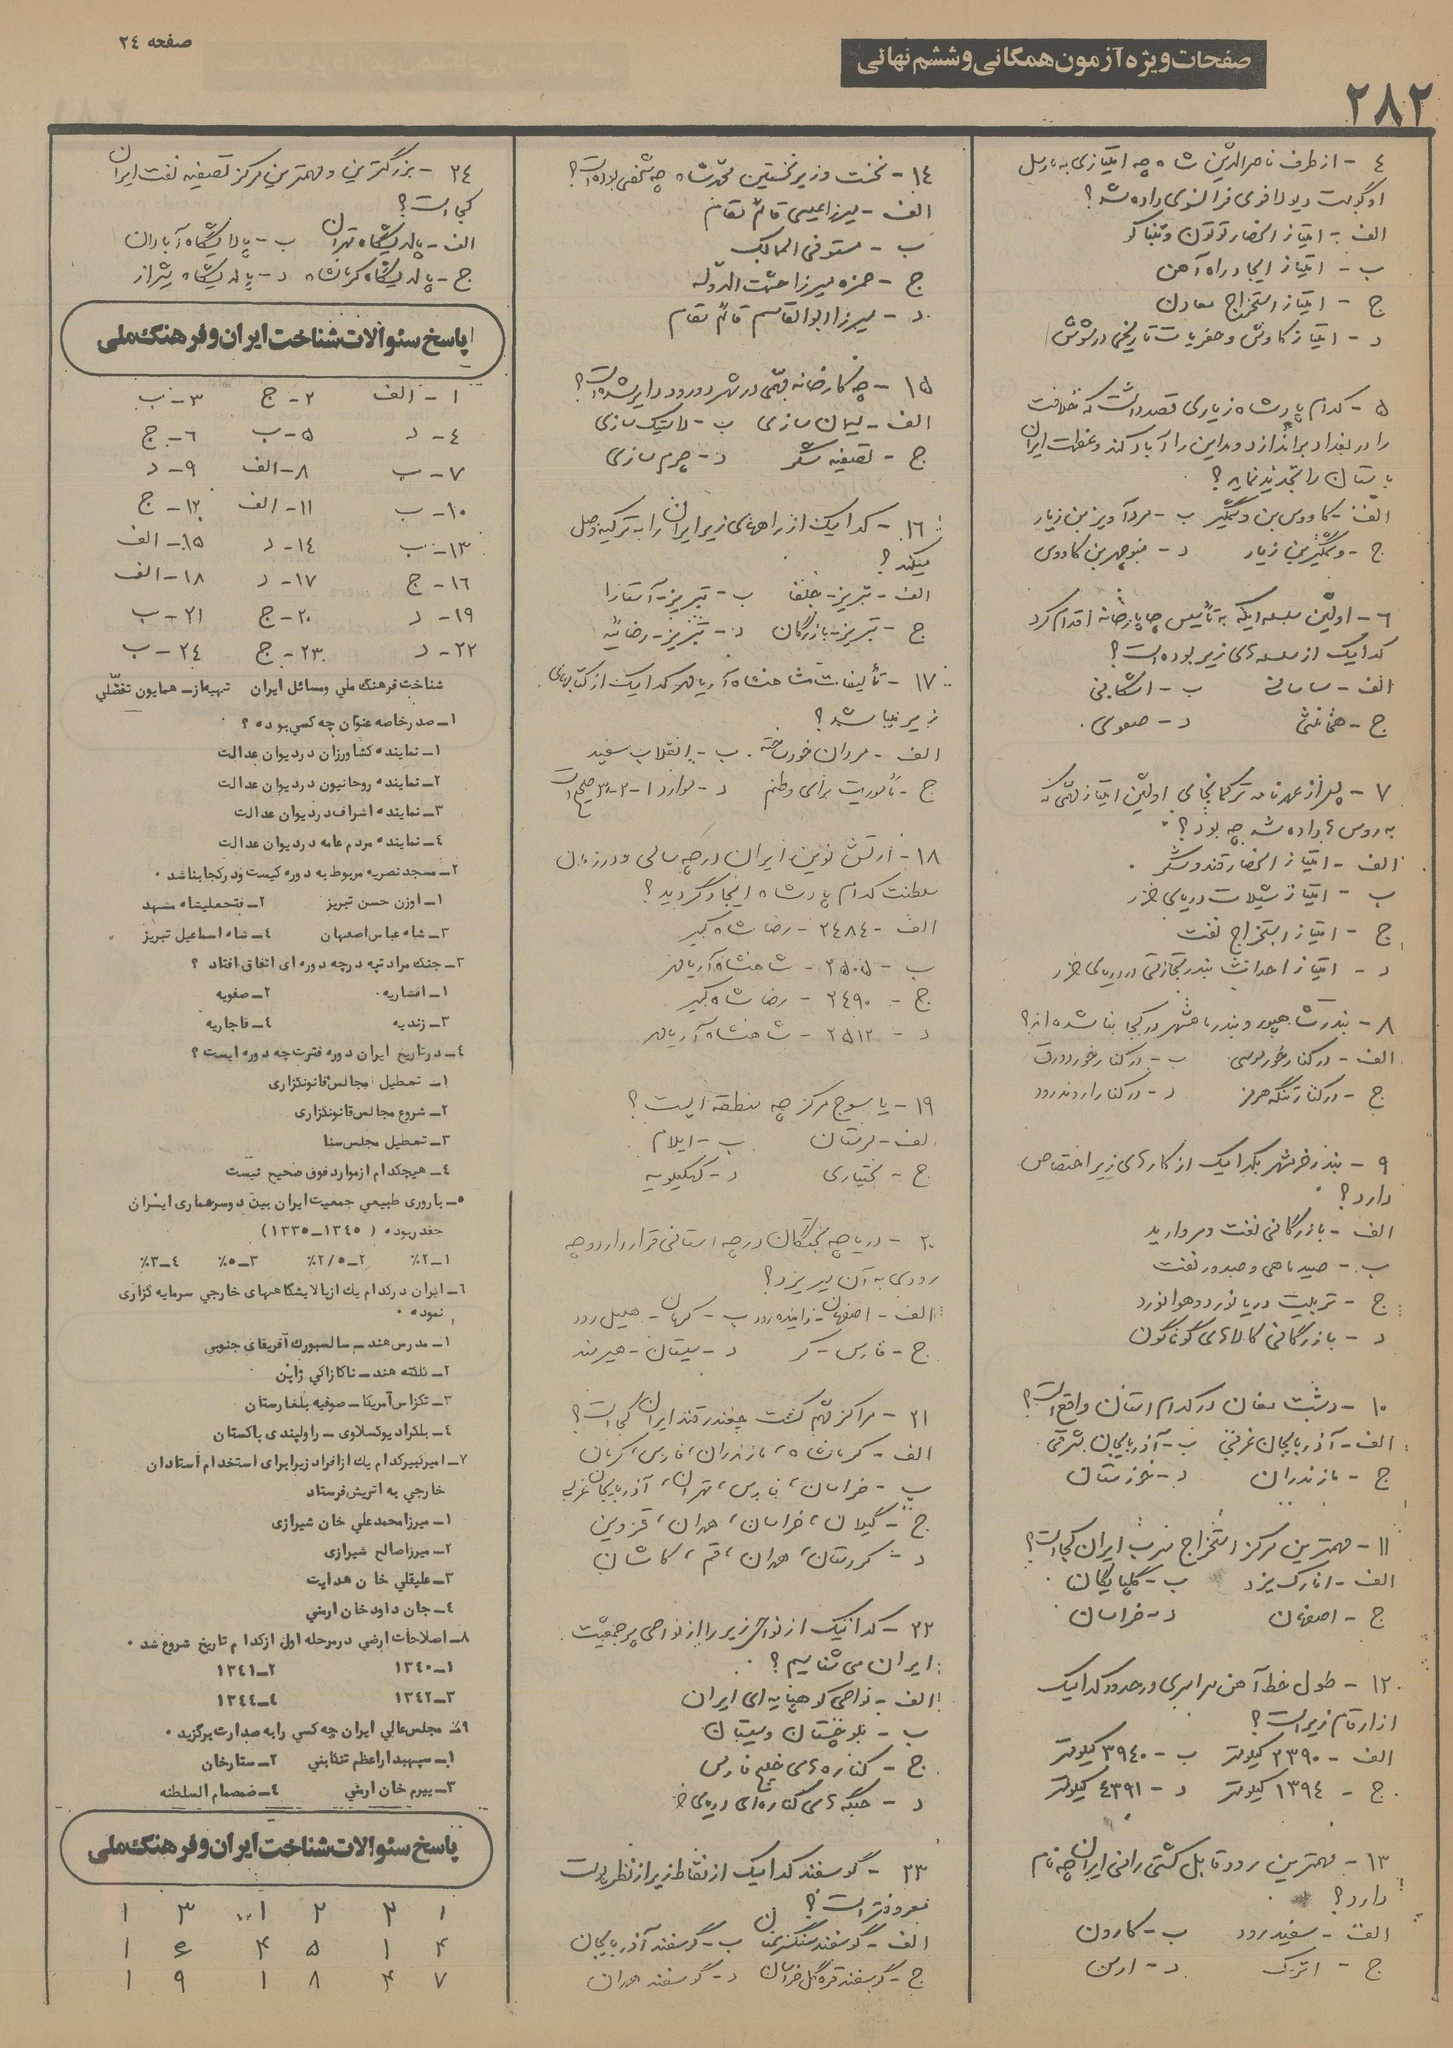 صفحه ٢٤
صفحات ویژه آزمون همگانی و ششم نهائی
٢٨٢
٤ - از طرف ناصرالدین شاه چه امتیازی به مارسل
اوگوست دیولافوی فرانسوی داده شد؟
الف - امتیاز انحصار توتون و تنباکو
ب - امتیاز ایجاد راه آهن
ج - امتیاز استخراج معادن
د - امتیاز کاوش و حفریات تاریخی در شوش
٥ - کدام پادشاه زیاری قصد داشت که خلافت
را در بغداد براندازد و مداین را آباد کند و عظمت ایران
باستان را تجدید نماید؟
الف - کاووس بن وشمگیر ب - مردآویز بن زیار
ج - وشمگیر بن زیار د - منوچهر بن کاووس
٦ - اولین سلسله‌ایکه به تأسیس چاپارخانه اقدام کرد
کدامیک از سلسله‌های زیر بوده است؟
الف - سامانی ب - اشکانی
ج - هخامنشی د - صفوی
٧ - پس از عهدنامه ترکمانچای اولین امتیاز مهمی که
به روس‌ها داده شد چه بود؟
الف - امتیاز انحصار قند و شکر
ب - امتیاز شیلات دریای خزر
ج - امتیاز استخراج نفت
د - امتیاز احداث بندر تجارتی در دریای خزر
٨ - بندر شاهپور و بندر ماهشهر در کجا بنا شده‌اند؟
الف - در کنار خور موسی ب - در کنار خور دورق
ج - در کنار تنگه هرمز د - در کنار اروندرود
٩ - بندر خرمشهر بکدامیک از کارهای زیر اختصاص
دارد؟
الف - بازرگانی نفت و مروارید
ب - صید ماهی و صدور نفت
ج - تربیت دریانورد و هوانورد
د - بازرگانی کالاهای گوناگون
١٠ - دشت مغان در کدام استان واقع است؟
الف - آذربایجان غربی ب - آذربایجان شرقی
ج - مازندران د - خوزستان
١١ - مهمترین مرکز استخراج سرب ایران کجاست؟
الف - انارک یزد ب - گلپایگان
ج - اصفهان د - خراسان
١٢ - طول خط آهن سراسری در حدود کدامیک
از ارقام زیر است؟
الف - ٢٣٩٠ کیلومتر ب - ٣٩٤٠ کیلومتر
ج - ١٣٩٤ کیلومتر د - ٤٣٩١ کیلومتر
١٣ - مهمترین رود قابل کشتی رانی ایران چه نام
دارد؟
الف - سفیدرود ب - کارون
ج - اترک د - ارس
١٤ - نخست وزیر نخستین محمدشاه چه شخصی بوده است؟
الف - میرزا عیسی قائم مقام
ب - مستوفی الممالک
ج - حمزه میرزا حشمت الدوله
د - میرزا ابوالقاسم قائم مقام
١٥ - چه کارخانه مهمی در شهر دورود دایر شده است؟
الف - سیمان سازی ب - لاستیک سازی
ج - تصفیه شکر د - چرم سازی
١٦ - کدامیک از راههای زیر ایران را به ترکیه وصل
میکند؟
الف - تبریز - جلفا ب - تبریز - آستارا
ج - تبریز - بازرگان د - تبریز - رضائیه
١٧ - تألیفات شاهنشاه آریامهر کدامیک از کتابهای
زیر میباشد؟
الف - مردان خودساخته ب - انقلاب سفید
ج - مأموریت برای وطنم د - موارد ١-٢-٣ صحیح است
١٨ - ارتش نوین ایران در چه سالی و در زمان
سلطنت کدام پادشاه ایجاد گردید؟
الف - ٢٤٨٤ - رضا شاه کبیر
ب - ٢٥٠٥ - شاهنشاه آریامهر
ج - ٢٤٩٠ - رضا شاه کبیر
د - ٢٥١٢ - شاهنشاه آریامهر
١٩ - یاسوج مرکز چه منطقه ایست؟
الف - لرستان ب - ایلام
ج - بختیاری د - کهکیلویه
٢٠ - دریاچه بختگان در چه استانی قرار دارد و چه
رودی به آن میریزد؟
الف - اصفهان - زاینده رود ب - کرمان - هلیل رود
ج - فارس - کر د - سیستان - هیرمند
٢١ - مراکز مهم کشت چغندر قند ایران کجاست؟
الف - کرمانشاه، مازندران، فارس، کرمان
ب - خراسان، فارس، تهران، آذربایجان غربی
ج - گیلان، خراسان، همدان، قزوین
د - کردستان، همدان، قم، کاشان
٢٢ - کدامیک از نواحی زیر را از نواحی پرجمعیت
ایران می‌شناسیم؟
الف - نواحی کوهپایه‌ای ایران
ب - بلوچستان و سیستان
ج - کناره‌های خلیج فارس
د - جلگه‌های کناره‌ای دریای خزر
٢٣ - گوسفند کدامیک از نقاط زیر از نظر پوست
معروفتر است؟
الف - گوسفند سنگسر سمنان ب - گوسفند آذربایجان
ج - گوسفند قره گل خراسان د - گوسفند همدان
٢٤ - بزرگترین و مهمترین مرکز تصفیه نفت ایران
کجاست؟
الف - پالایشگاه تهران ب - پالایشگاه آبادان
ج - پالایشگاه کرمانشاه د - پالایشگاه شیراز
پاسخ سئوالات شناخت ایران و فرهنگ ملی
١ - الف ٢ - ج ٣ - ب
٤ - د ٥ - ب ٦ - ج
٧ - ب ٨ - الف ٩ - د
١٠ - ب ١١ - الف ١٢ - ج
١٣ - ب ١٤ - د ١٥ - الف
١٦ - ج ١٧ - د ١٨ - الف
١٩ - د ٢٠ - ج ٢١ - ب
٢٢ - د ٢٣ - ج ٢٤ - ب
شناخت فرهنگ ملی ومسائل ایران تهیه از ـ همایون تفضّلی
١ـ صدر خاصه عنوان چه کسی بوده ؟
١ـ نماینده کشاورزان در دیوان عدالت
٢ـ نماینده روحانیون در دیوان عدالت
٣ـ نماینده اشراف در دیوان عدالت
٤ـ نماینده مردم عامه در دیوان عدالت
٢ـ مسجد نصریه مربوط به دوره کیست ودر کجا بنا شد.
١ـ اوزن حسن تبریز ٢ـ فتحعلیشاه مشهد
٣ـ شاه عباس اصفهان ٤ـ شاه اسماعیل تبریز
٣ـ جنگ مراد تپه در چه دوره ای اتفاق افتاد ؟
١ـ افشاریه ٢ـ صفویه
٣ـ زندیه ٤ـ قاجاریه
٤ـ در تاریخ ایران دوره فترت چه دوره ایست ؟
١ـ تعطیل مجالس قانونگزاری
٢ـ شروع مجالس قانونگزاری
٣ـ تعطیل مجلس سنا
٤ـ هیچکدام از موارد فوق صحیح نیست
٥ـ باروری طبیعی جمعیت ایران بین دو سرشماری ایران
چقدر بوده ( ١٣٤٥ـ١٣٣٥)
١ـ ٢٪ ٢ـ ٢/٥٪ ٣ـ ٥٪ ٤ـ ٣٪
٦ـ ایران در کدام یك از پالایشگاههای خارجی سرمایه گزاری
نموده .
١ـ مدرس هند ـ سالسبورك آفریقای جنوبی
٢ـ کلکته هند ـ ناکازاکی ژاپن
٣ـ تکزاس آمریکا ـ صوفیه بلغارستان
٤ـ بلگراد یوگسلاوی ـ راولپندی پاکستان
٧ـ امیرکبیر کدام یك از افراد زیر ابرای استخدام استادان
خارجی به اتریش فرستاد
١ـ میرزا محمد علی خان شیرازی
٢ـ میرزا صالح شیرازی
٣ـ علیقلی خان هدایت
٤ـ جان داود خان ارمنی
٨ـ اصلاحات ارضی در مرحله اول از کدام تاریخ شروع شد .
١ـ ١٣٤٠ ٢ـ ١٣٤١
٣ـ ١٣٤٢ ٤ـ ١٣٤٤
٩ـ مجلس عالی ایران چه کسی را به صدارت برگزید .
١ـ سپهبدار اعظم تنکابنی ٢ـ ستارخان
٣ـ یپرم خان ارمنی ٤ـ صمصام السلطنه
پاسخ سئوالات شناخت ایران و فرهنگ ملی
١ ٣ ٢ ١ ٣ ١
٤ ١ ٥ ٤ ٦ ١
٧ ٤ ٨ ١ ٩ ١